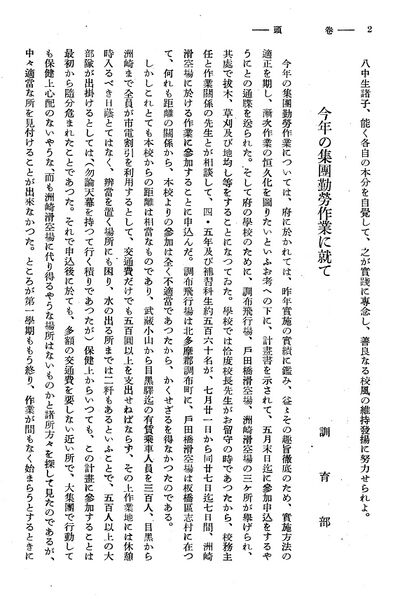 2 ― 卷頭 ―
八中生諸子、能く各自の本分を自覺して、之が實踐に專念し、善良なる校風の維持發揚に努力せられよ。
今年の集團勤勞作業に就て
訓育部
今年の集團勤勞作業については、府に於かれては、昨年實施の實績に鑑み、益々その趣旨徹底のため、實施方法の
適正を期し、漸次作業の恒久化を圖りたいといふお考への下に、計畫書を示されて、五月末日迄に參加申込をするや
うにとの通牒を送られた。そして府の學校のために、調布飛行場、戸田橋滑空場、洲崎滑空場の三ヶ所が擧げられ、
其處で拔木、草刈及び地均し等をすることになつてゐた。學校では恰度校長先生がお留守の時であつたから、校務主
任と作業關係の先生とが相談して、四・五年及び補習科生約五百六十名が、七月廿一日から同廿七日迄七日間、洲崎
滑空場に於ける作業に參加することに申込んだ。調布飛行場は北多摩郡調布町に、戸田橋滑空場は板橋區志村に在つ
て、何れも距離の關係から、本校よりの參加は全く不適當であつたから、かくせざるを得なかつたのである。
しかしこれとても本校からの距離は相當なものであり、武藏小山から目黑驛迄の有賃乘車人員を三百人、目黑から
洲崎まで全員が市電割引を利用するとして、交通費だけでも五百圓以上を支出せねばならず、その上作業地には休憩
時入るべき日蔭とてはなく、辨當を置く場所にも困り、水の出る所までは二粁もあるといふことで、五百人以上の大
部隊が出掛けるとしては、（勿論天幕を持つて行く積りであつたが）保健上からいつても、この計畫に參加することは
最初から隨分危まれたことであつた。それで申込後に於ても、多額の交通費を要しない近い所で、大集團で行動して
も保健上心配のないやうな、而も洲崎滑空場に代り得るやうな場所はないものかと諸所方々を探して見たのであるが、
中々適當な所を見付けることが出來なかつた。ところが第一學期ももう終り、作業が間もなく始まらうとするときに